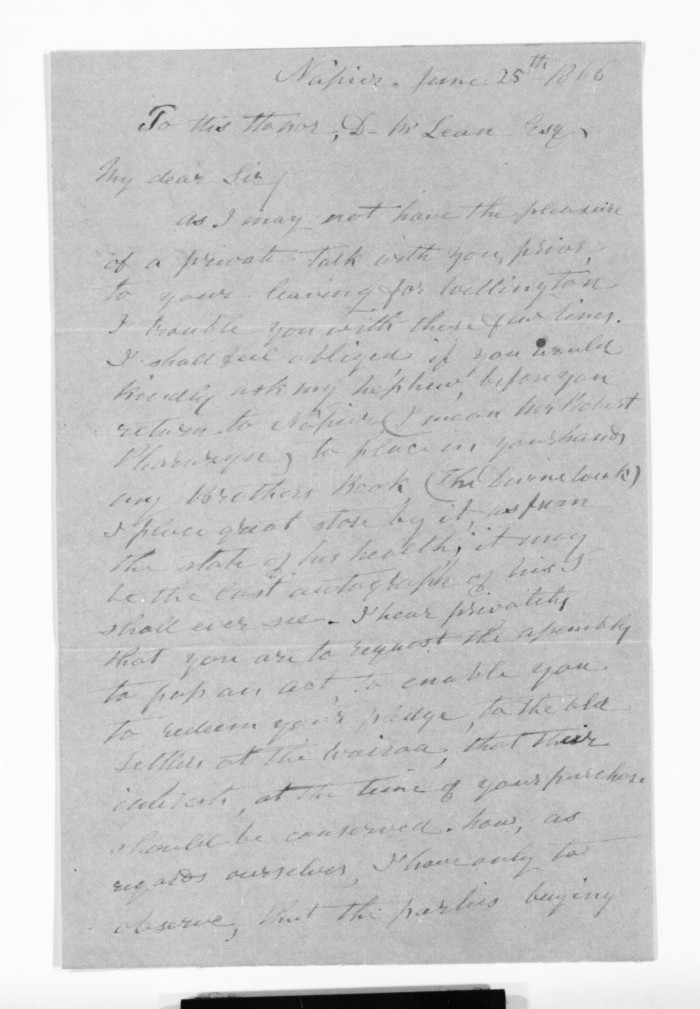 Napier. June 25th 1866
To His Honor, D- McLean Esq,
My dear Sir/
as I may not have the pleasure
of a private talk with you, prior,
to your leaving for Wellington
I trouble you with these few lines.
I shall feel obliged, if you would
kindly ask my nephew, before you
return to Napier (I mean Mr Robert
Pharazyn) to place in your hands
my Brothers Book,
I place great store by it, as from
the state of his health, it may
be the last autograph of his I
shall ever see. I hear privately
that you are to request the assembly
to pass an act, to enable you
to redeem your pledge, to the old
settlers at the Wairoa, that their
interests, at the time of your purchase
should be conserved. how, as
regards ourselves, I have only to
observe, that the parties buying